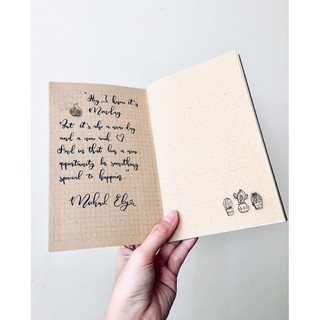 "Hey, I know it's
Monday
But it's also a new day
and a new week. ♡
And in that lies a new
opportunity for something
special to happen."
Michael Ely